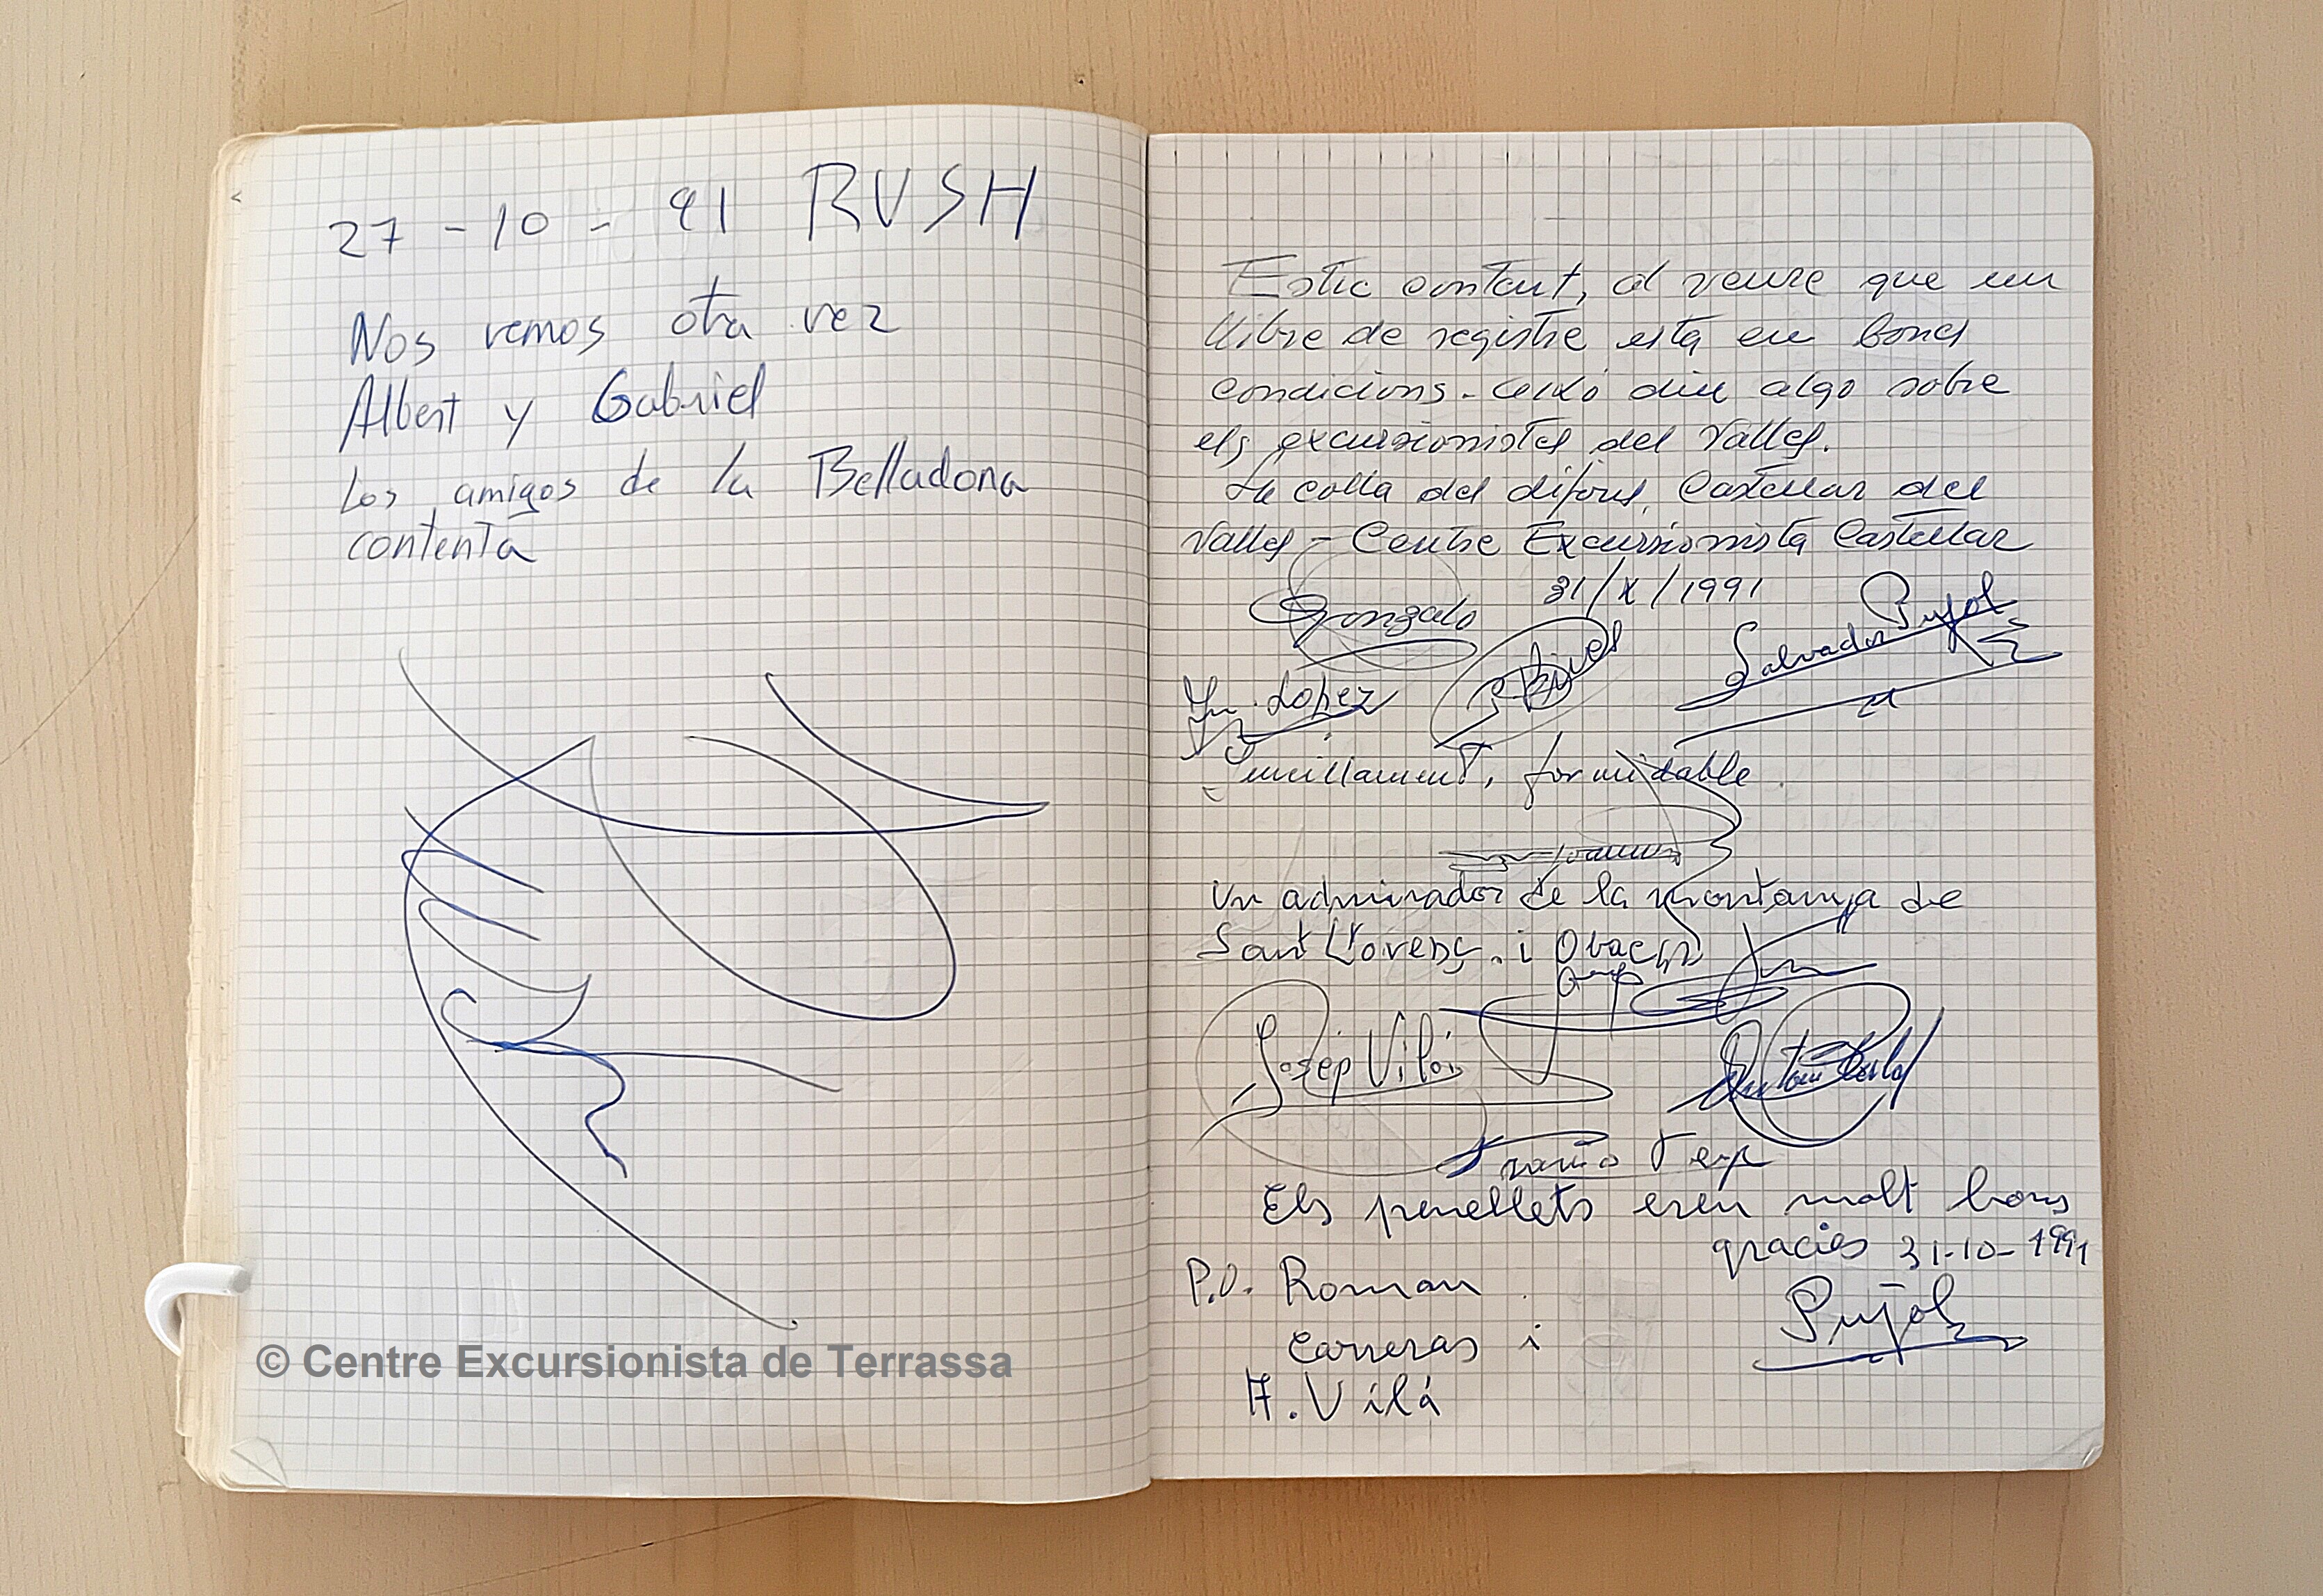 27 - 10 - 91 RUSH
Nos vemos otra vez
Albert y Gabriel
Los amigos de la Belladona
contenta
© Centre Excursionista de Terrassa
Estic content, al veure que un
llibre de registre està en bones
condicions. Això diu algo sobre
els excursionistes del Vallès.
La colla del dijous, Castellar del
Vallès - Centre Excursionista Castellar
31/X/1991
Gonzalo
Salvador Pujol
Lopez
Sencillament, formidable.
Un admirador de la montanya de
Sant Llorenç i Obac
Josep Vilá
Antoni
Els penellets eren molt bons
gracies 31-10-1991
P.O. Roman
Carreras i
A. Vilá
Pujol